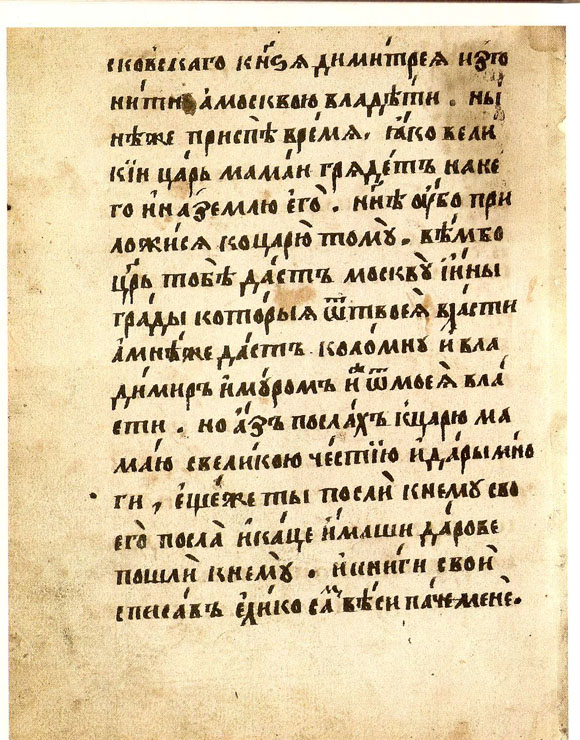 сковскаго кн҃ѕя димитрея изго
нити, а́москвою владѣти . ны́
нѣже приспѣ́ вре́мя, ꙗ҆́ко вели
кїи ца́рь мама́и гряде́тъ на не
го и҆ на зе́млю е҆го̀ . нн҃ѣ ᲂу҆́бо при
ложи́ся ко царю̀ томꙋ̀ . вѣ́мбо
цр҃ь тобѣ̀ да́стъ москвꙋ̀ и҆ и҆́ны
гра́ды кото́рыя ѿ твоея̀ вла́сти
а҆ мнѣ́же да́стъ коло́мнꙋ и҆ вла
ди́миръ и҆ мꙋ́ромъ и҆ ѿ моея̀ вла́
сти . но а҆́зъ посла́хъ к царю ма
ма́ю с великою че́стїю и҆ да́ры мно́
ги , е҆ще́же ты послѝ к немꙋ сво
его̀ посла̀ и҆ ка́це и҆́маши да́рове
пошлѝ к немꙋ̀ . и҆ книги своѝ
списавъ е҆ли́ко са́м вѣ́си па́че менѐ.